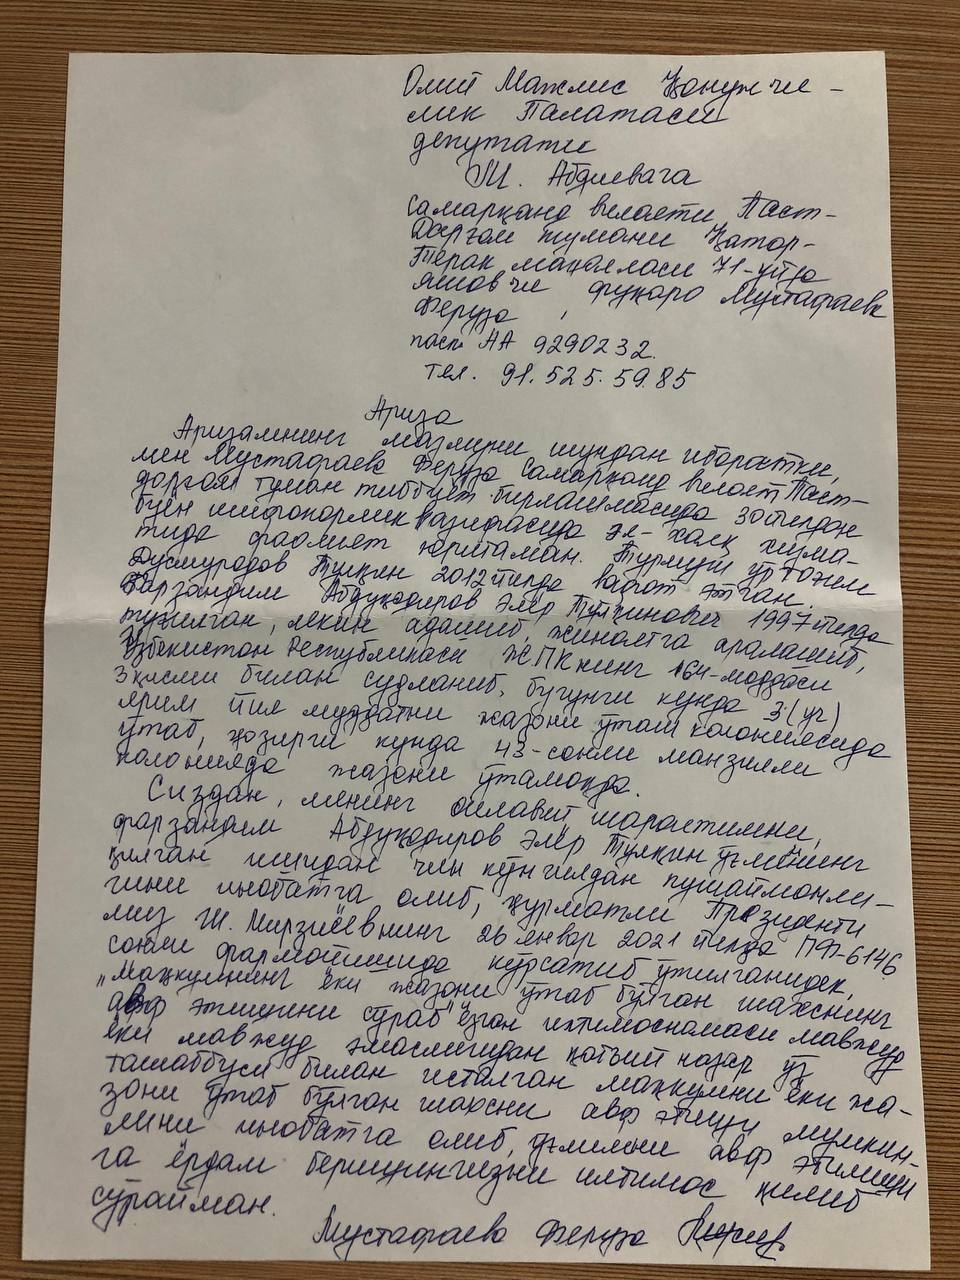 Олий Мажлис Қонунчи-
лик Палатаси
депутати
М. Абдиевага
Самарқанд вилояти Паст-
Дарғом тумани Қатор-
Терак махалласи 71-уйда
яшовчи фуқаро Мустафаева
Феруза
пасп АА 9290232.
тел. 91.525.59.85
Ариза
Аризамнинг мазмуни шундан иборатки,
мен Мустафаева Феруза Самарқанд вилоят Паст-
дарғом туман тиббиёт бирлашмасида 30 йилдан
буён шифокорлик вазифасида эл-халқ хизма-
тида фаолият юритаман. Турмуш ўртоғим
Дусмуродов Тулқин 2012 йилда вафот этган.
Фарзандим Абдуқодиров Элёр Тулқинович 1997 йилда
туғилган, лекин адашиб, жиноятга аралашиб,
Ўзбекистон Республикаси ЖПКнинг 164-моддаси
3 қисми билан судланиб, бугунги кунда 3 (уч)
ярим йил муддатни жазони ўташ колониясида
ўтаб, ҳозирги кунда 43-сонли манзилли
колонияда жазони ўтамоқда.
Сиздан, менинг оилавий шароитимни,
фарзандим Абдуқодиров Элёр Тулқин ўғлининг
қилган ишидан чин кўнгилдан пушаймонли-
гини инобатга олиб, ҳурматли Президенти
миз Ш. Мирзиёевнинг 26 январ 2021 йилда ПФ-6146
сонли фармойишида кўрсатиб ўтилганидек,
"Маҳкумнинг ёки жазони ўтаб бўлган шахснинг
авф этишини сўраб" ёзган илтимосномаси мавжуд
ёки мавжуд эмаслигидан қатъий назар ўз
ташаббуси билан исталган маҳкумни ёки жа-
зони ўтаб бўлган шахсни авф этиши мумкин-
лини инобатга олиб, ўғлимни авф этилиши
га ёрдам беришингизни илтимос қилиб
сўрайман.
Мустафаева Феруза